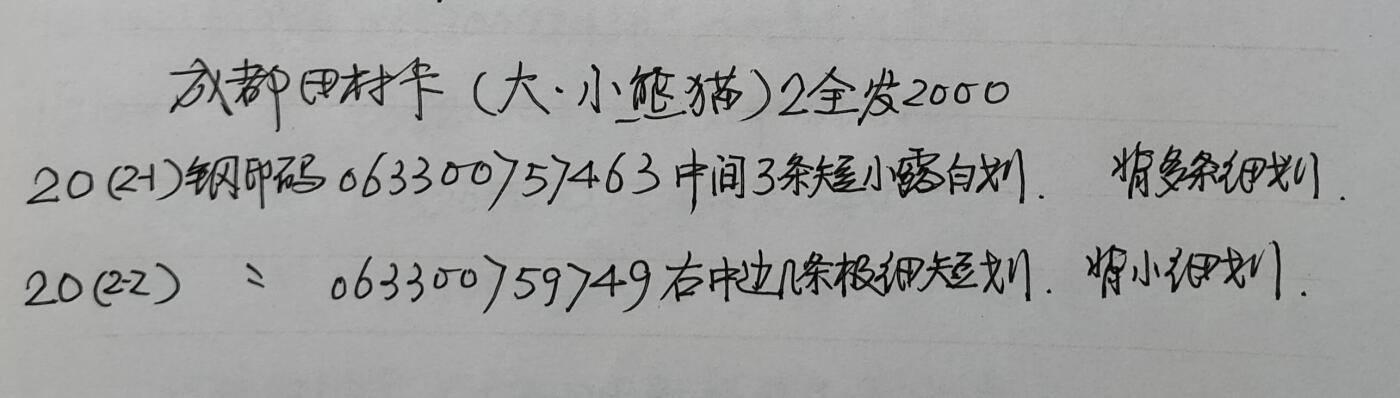 成都田村卡(大·小熊猫)2全发2000
20(2-1)钢印码063300757463中间3条短小露白划. 背多条细划.
20(2-2) 〃 063300759749右中边几条极细短划. 背小细划.